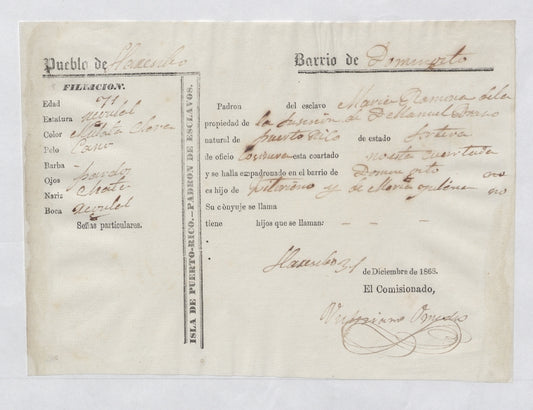 Pueblo de
Barrio de Domingito
FILIACION.
Edad 71
Estatura regulel
Color Mulata Clara
Pelo Cano
Barba -
Ojos pardo
Nariz Chata
Boca regulel
Señas particulares.
ISLA DE PUERTO-RICO.—PADRON DE ESCLAVOS.
Padron del esclavo Maria Ramona de la
propiedad de la de D. Manuel
natural de puerto Rico de estado Soltera
de oficio Costurera esta coartado no esta cuartada
y se halla empadronado en el barrio de Domingito
es hijo de y de Maria
Su cónyuje se llama
tiene hijos que se llaman: — — —
31 de Diciembre de 1868.
El Comisionado,